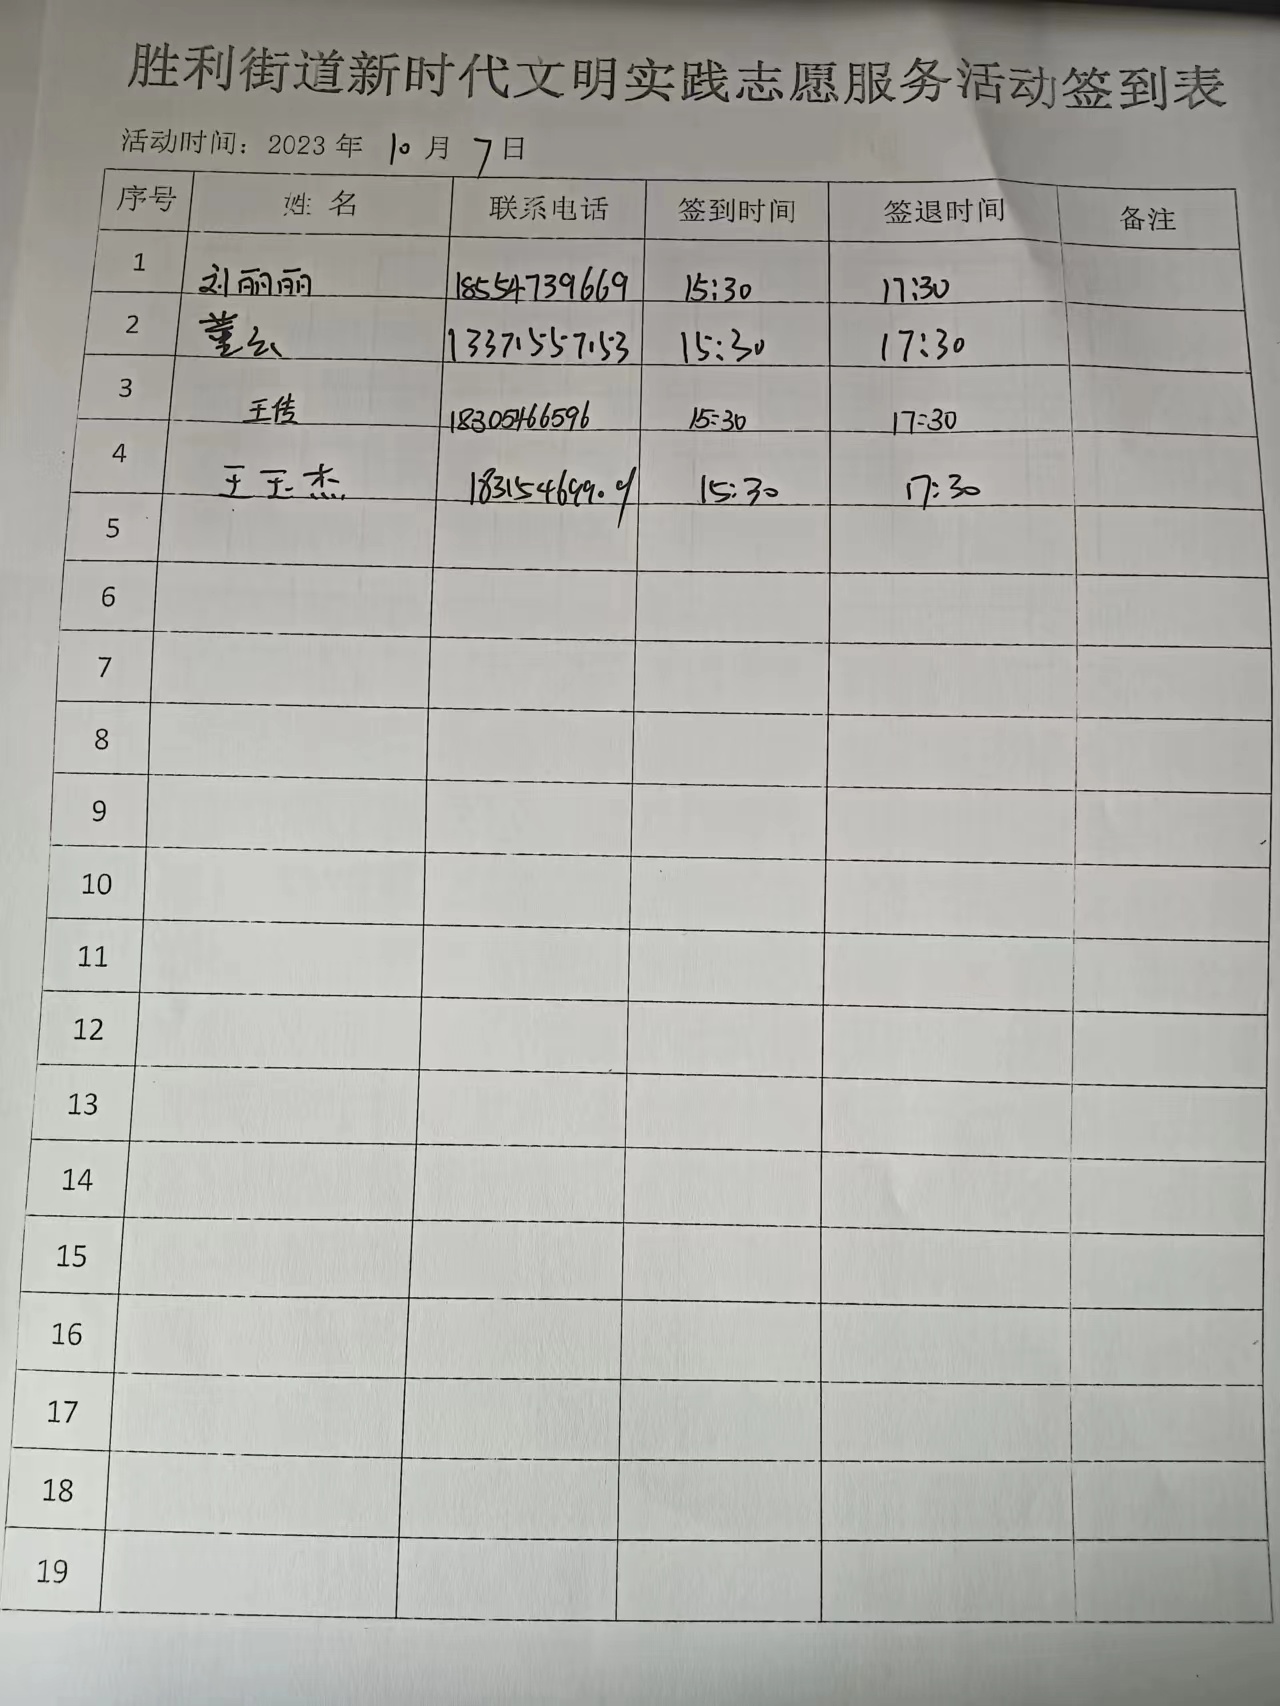 胜利街道新时代文明实践志愿服务活动签到表
活动时间：2023 年 10 月 7 日
序号 姓 名 联系电话 签到时间 签退时间 备注
1 刘丽丽 18554739669 15:30 17:30
2 董云 13371557153 15:30 17:30
3 王传 18305466596 15:30 17:30
4 王玉杰 15:30 17:30
5
6
7
8
9
10
11
12
13
14
15
16
17
18
19